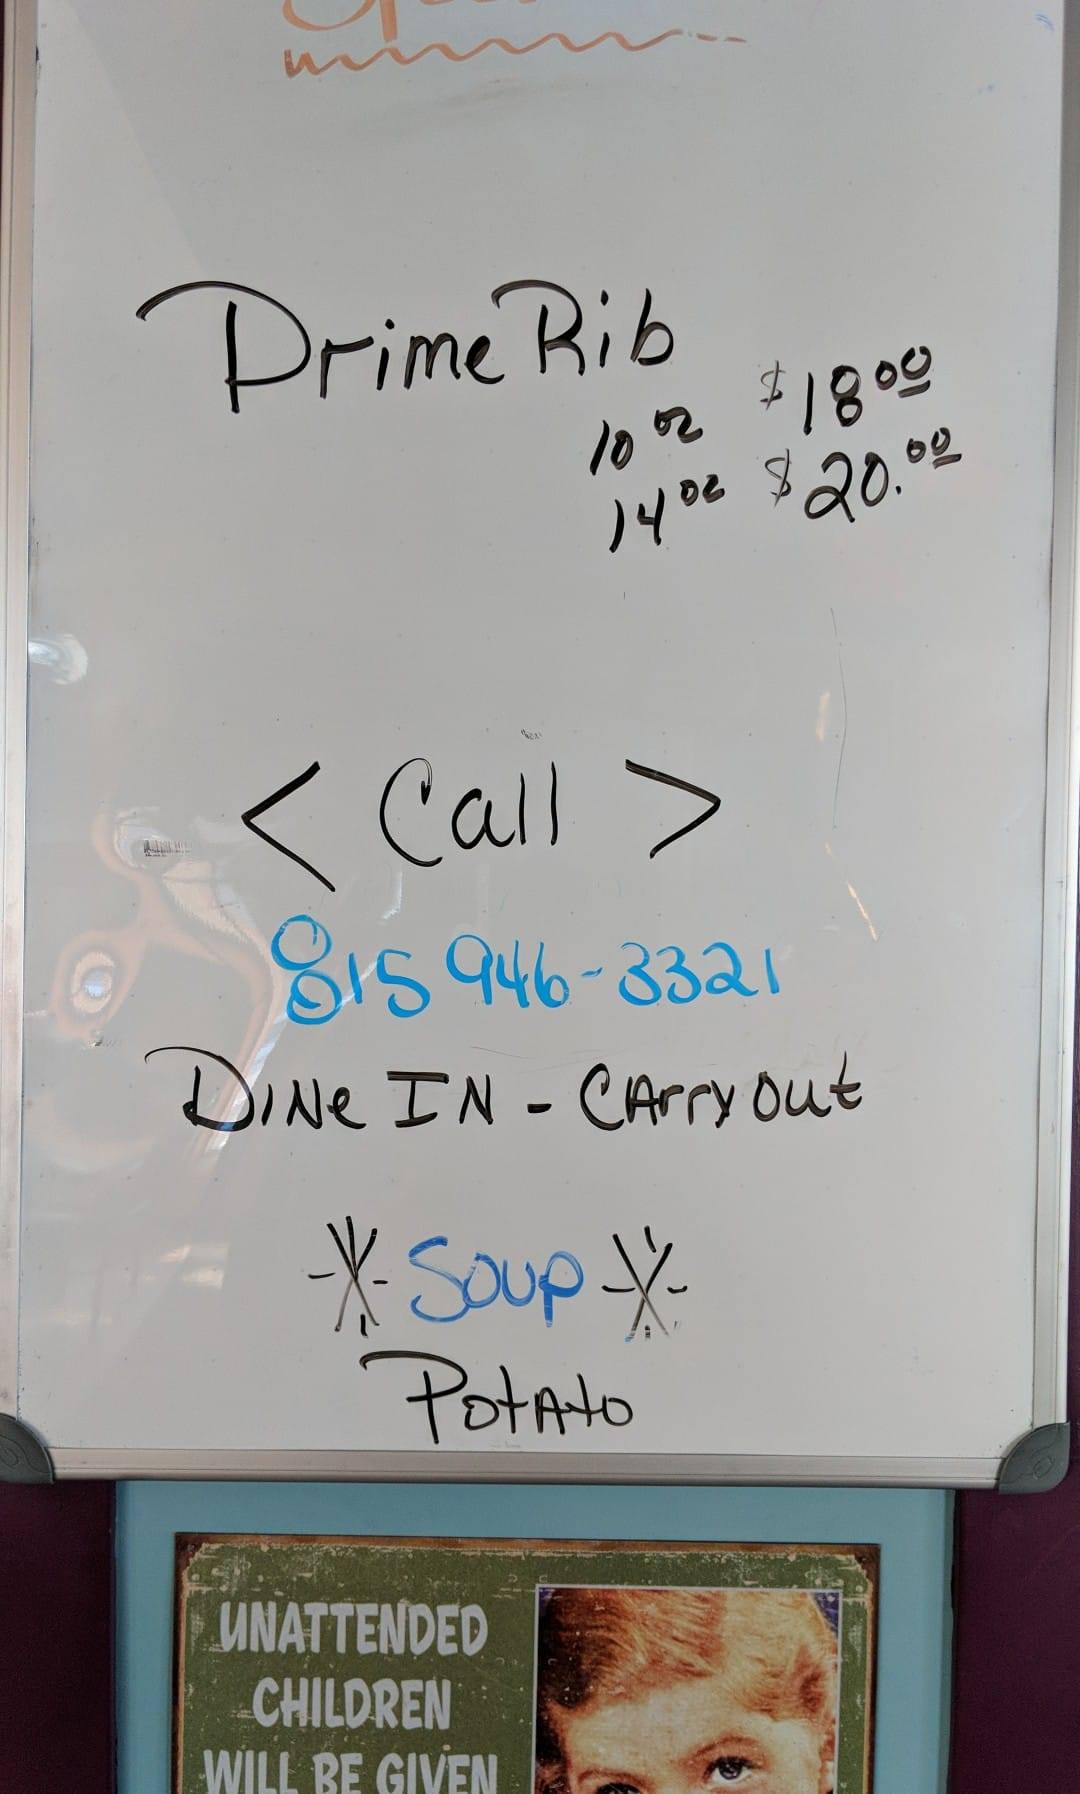 Prime Rib
10 oz $18 00
14 oz $20.00
< Call >
815 946-3321
DINe IN - CArry Out
Soup
Potato
UNATTENDED
CHILDREN
WILL BE GIVEN